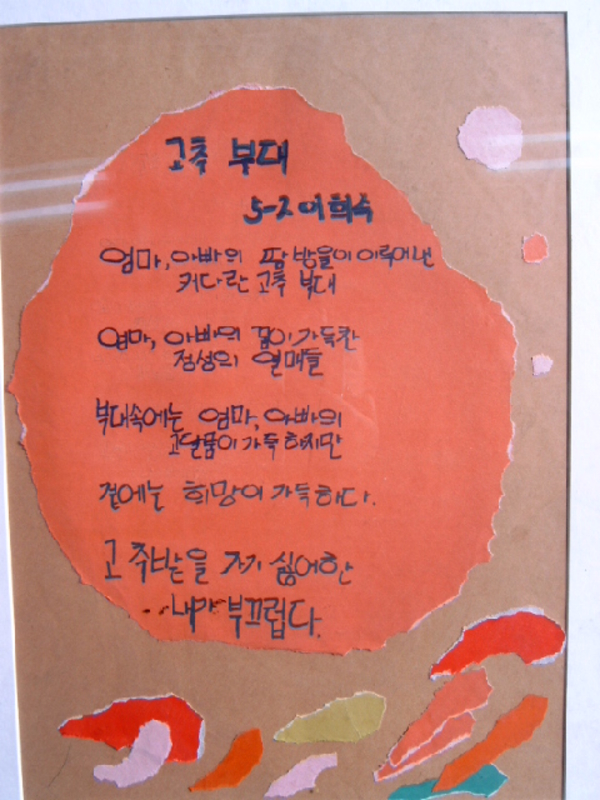 고추 부대
5-2 이희숙
엄마, 아빠의 땀방울이 이루어낸
커다란 고추 부대
엄마, 아빠의 꿈이 가득찬
정성의 열매들
부대속에는 엄마, 아빠의
고달픔이 가득하지만
겉에는 희망이 가득하다.
고추밭을 가기 싫어한
내가 부끄럽다.